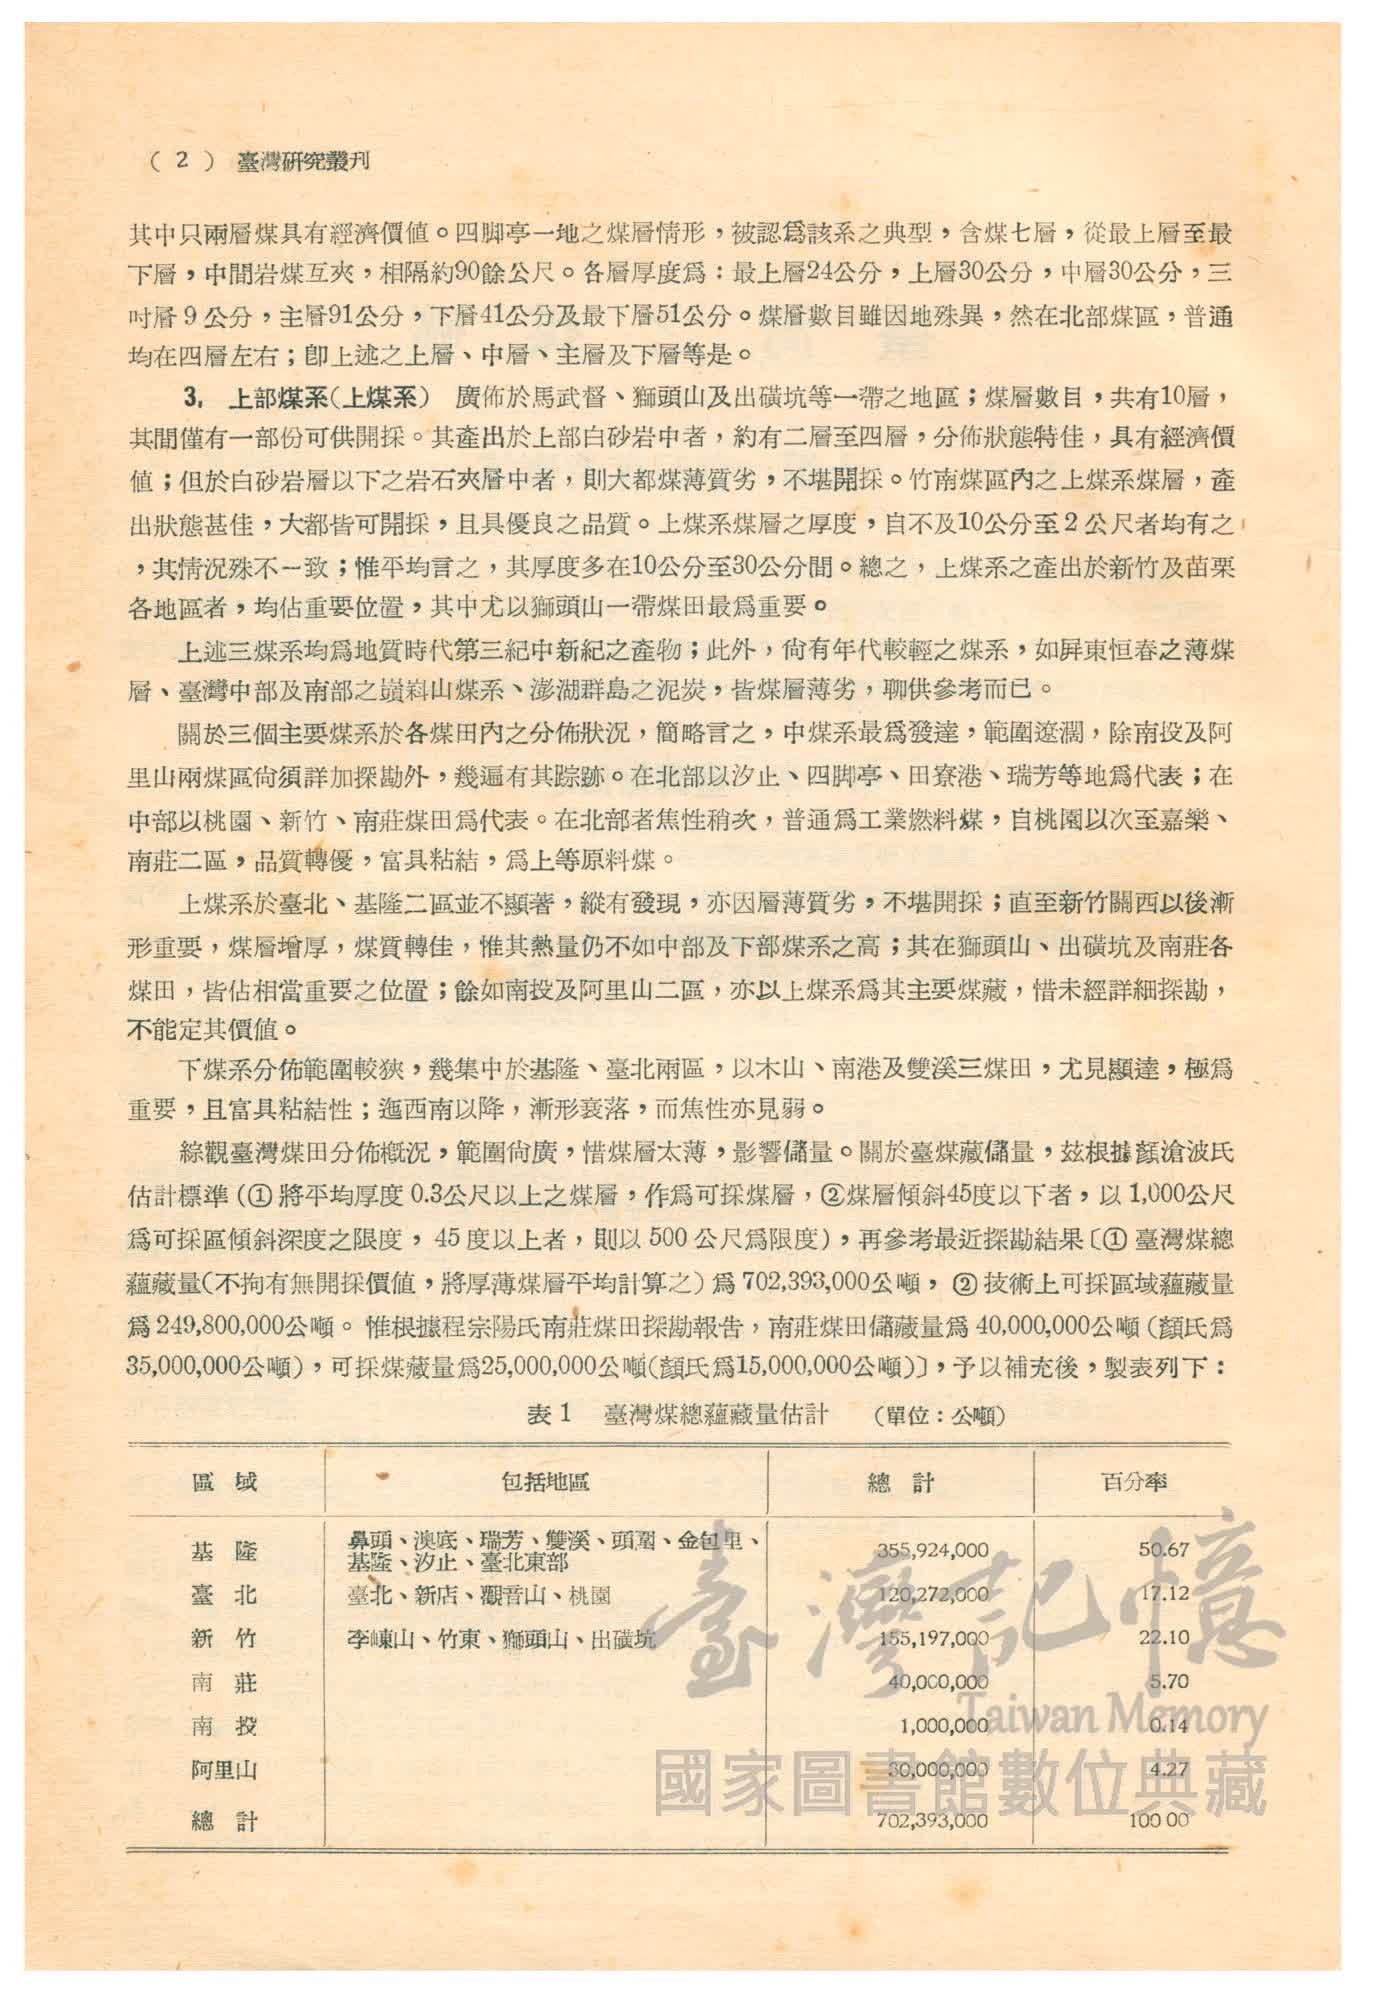 ( 2 ) 臺灣研究叢刊
其中只兩層煤具有經濟價值。四脚亭一地之煤層情形，被認爲該系之典型，含煤七層，從最上層至最
下層，中間岩煤互夾，相隔約90餘公尺。各層厚度爲：最上層24公分，上層30公分，中層30公分，三
吋層9公分，主層91公分，下層41公分及最下層51公分。煤層數目雖因地殊異，然在北部煤區，普通
均在四層左右；卽上述之上層、中層、主層及下層等是。
3. 上部煤系(上煤系) 廣佈於馬武督、獅頭山及出磺坑等一帶之地區；煤層數目，共有10層，
其間僅有一部份可供開採。其產出於上部白砂岩中者，約有二層至四層，分佈狀態特佳，具有經濟價
値；但於白砂岩層以下之岩石夾層中者，則大都煤薄質劣，不堪開採。竹南煤區內之上煤系煤層，產
出狀態甚佳，大都皆可開採，且具優良之品質。上煤系煤層之厚度，自不及10公分至2公尺者均有之
，其情況殊不一致；惟平均言之，其厚度多在10公分至30公分間。總之，上煤系之產出於新竹及苗栗
各地區者，均佔重要位置，其中尤以獅頭山一帶煤田最爲重要。
上述三煤系均爲地質時代第三紀中新紀之產物；此外，尙有年代較輕之煤系，如屛東恒春之薄煤
層、臺灣中部及南部之嵙山煤系、澎湖群島之泥炭，皆煤層薄劣，聊供參考而已。
關於三個主要煤系於各煤田內之分佈狀況，簡略言之，中煤系最爲發達，範圍遼濶，除南投及阿
里山兩煤區尙須詳加探勘外，幾遍有其踪跡。在北部以汐止、四脚亭、田寮港、瑞芳等地爲代表；在
中部以桃園、新竹、南莊煤田爲代表。在北部者焦性稍次，普通爲工業燃料煤，自桃園以次至嘉樂、
南莊二區，品質轉優，富具粘結，爲上等原料煤。
上煤系於臺北、基隆二區並不顯著，縱有發現，亦因層薄質劣，不堪開採；直至新竹關西以後漸
形重要，煤層增厚，煤質轉佳，惟其熱量仍不如中部及下部煤系之高；其在獅頭山、出磺坑及南莊各
煤田，皆佔相當重要之位置；餘如南投及阿里山二區，亦以上煤系爲其主要煤藏，惜未經詳細探勘，
不能定其價值。
下煤系分佈範圍較狹，幾集中於基隆、臺北兩區，以木山、南港及雙溪三煤田，尤見顯達，極爲
重要，且富具粘結性；迤西南以降，漸形衰落，而焦性亦見弱。
綜觀臺灣煤田分佈槪況，範圍尙廣，惜煤層太薄，影響儲量。關於臺煤藏儲量，茲根據顏滄波氏
估計標準(①將平均厚度0.3公尺以上之煤層，作爲可採煤層，②煤層傾斜45度以下者，以1,000公尺
爲可採區傾斜深度之限度，45度以上者，則以500公尺爲限度)，再參考最近探勘結果〔①臺灣煤總
蘊藏量(不拘有無開採價值，將厚薄煤層平均計算之)爲702,393,000公噸，②技術上可採區域蘊藏量
爲249,800,000公噸。惟根據程宗陽氏南莊煤田探勘報告，南莊煤田儲藏量爲40,000,000公噸(顏氏爲
35,000,000公噸)，可採煤藏量爲25,000,000公噸(顏氏爲15,000,000公噸)〕，予以補充後，製表列下：
表1 臺灣煤總蘊藏量估計 (單位：公噸)
區域 包括地區 總計 百分率
基隆 鼻頭、澳底、瑞芳、雙溪、頭圍、金包里、基隆、汐止、臺北東部 355,924,000 50.67
臺北 臺北、新店、觀音山、桃園 120,272,000 17.12
新竹 李崠山、竹東、獅頭山、出磺坑 155,197,000 22.10
南莊 40,000,000 5.70
南投 1,000,000 0.14
阿里山 30,000,000 4.27
總計 702,393,000 100 00
臺灣記憶
Taiwan Memory
國家圖書館數位典藏